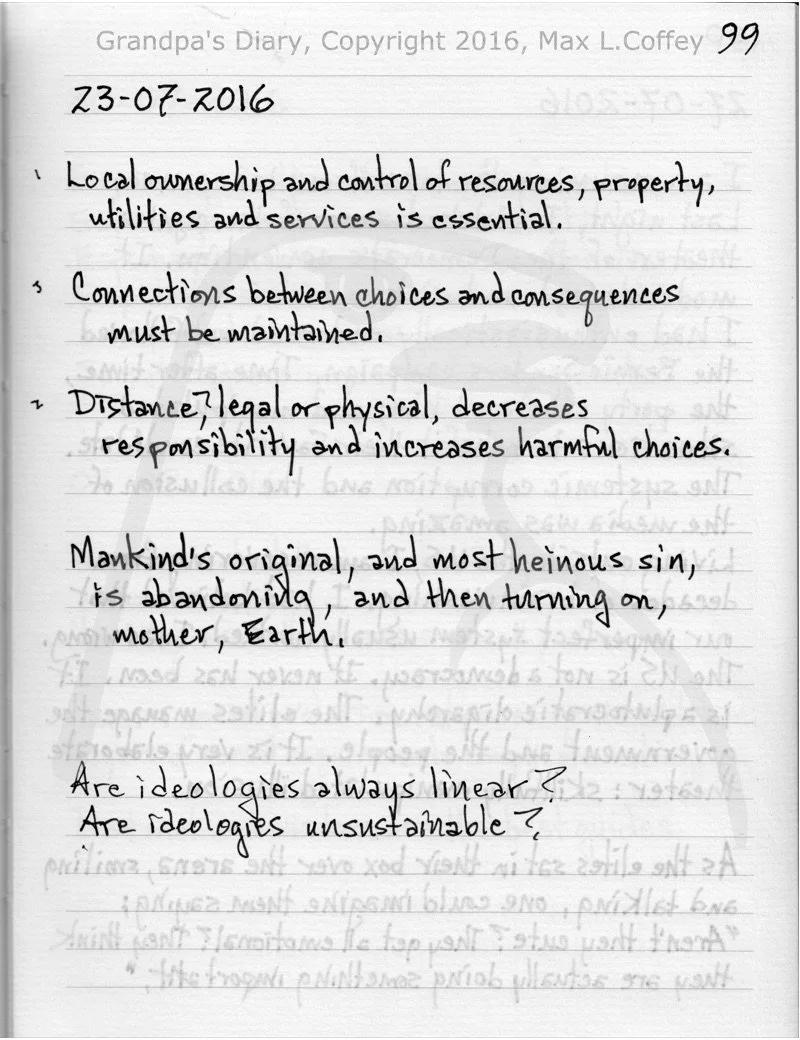 Grandpa's Diary, Copyright 2016, Max L.Coffey 99
23-07-2016
1 Local ownership and control of resources, property,
utilities and services is essential.
3 Connections between choices and consequences
must be maintained.
2 Distance, legal or physical, decreases
responsibility and increases harmful choices.
Mankind's original, and most heinous sin,
is abandoning, and then turning on,
mother, Earth.
Are ideologies always linear?
Are ideologies unsustainable?